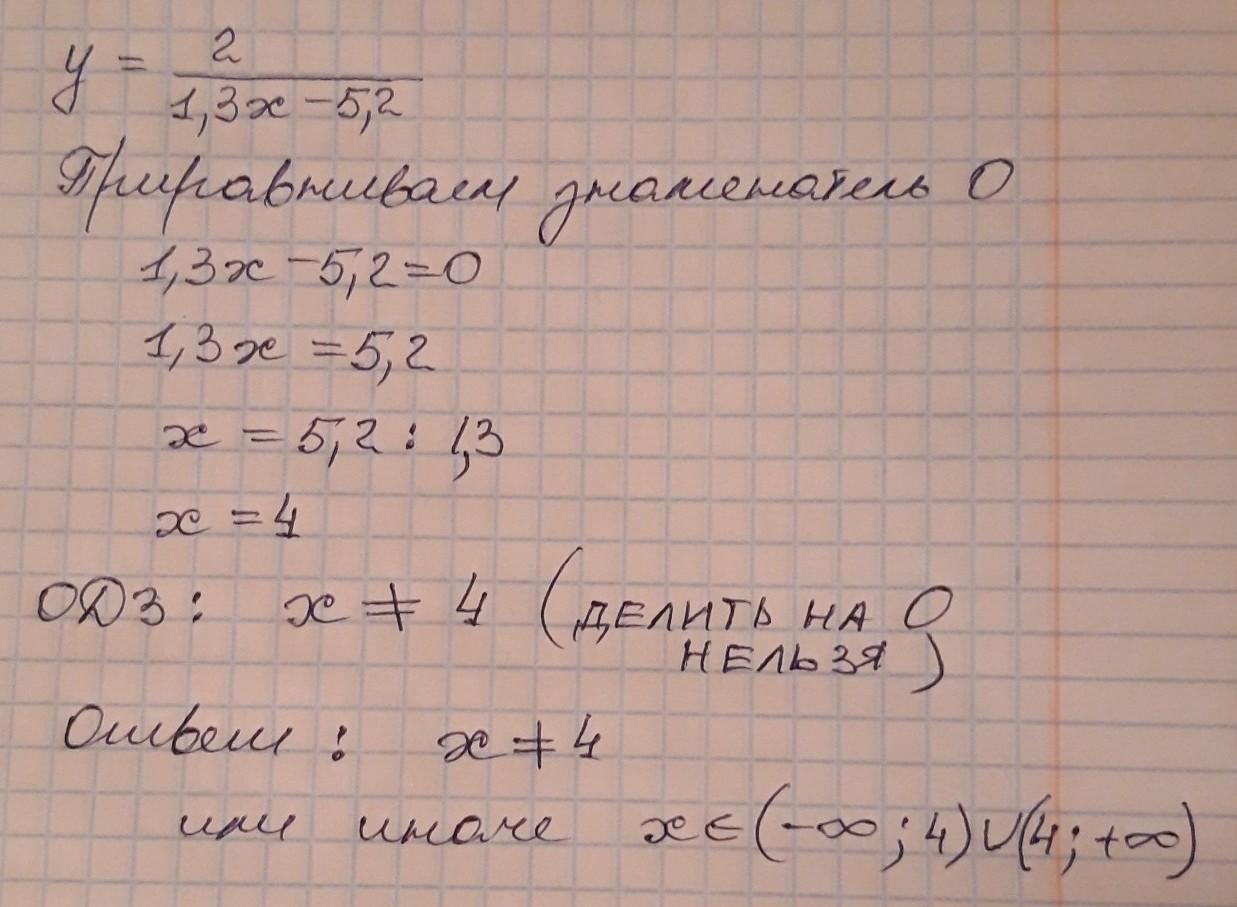 y = 2 / 1,3x - 5,2
Приравниваем знаменатель 0
1,3x - 5,2 = 0
1,3x = 5,2
x = 5,2 : 1,3
x = 4
ОДЗ: x ≠ 4 (ДЕЛИТЬ НА 0
НЕЛЬЗЯ)
Ответ: x ≠ 4
или иначе x ∈ (-∞; 4) ∪ (4; +∞)